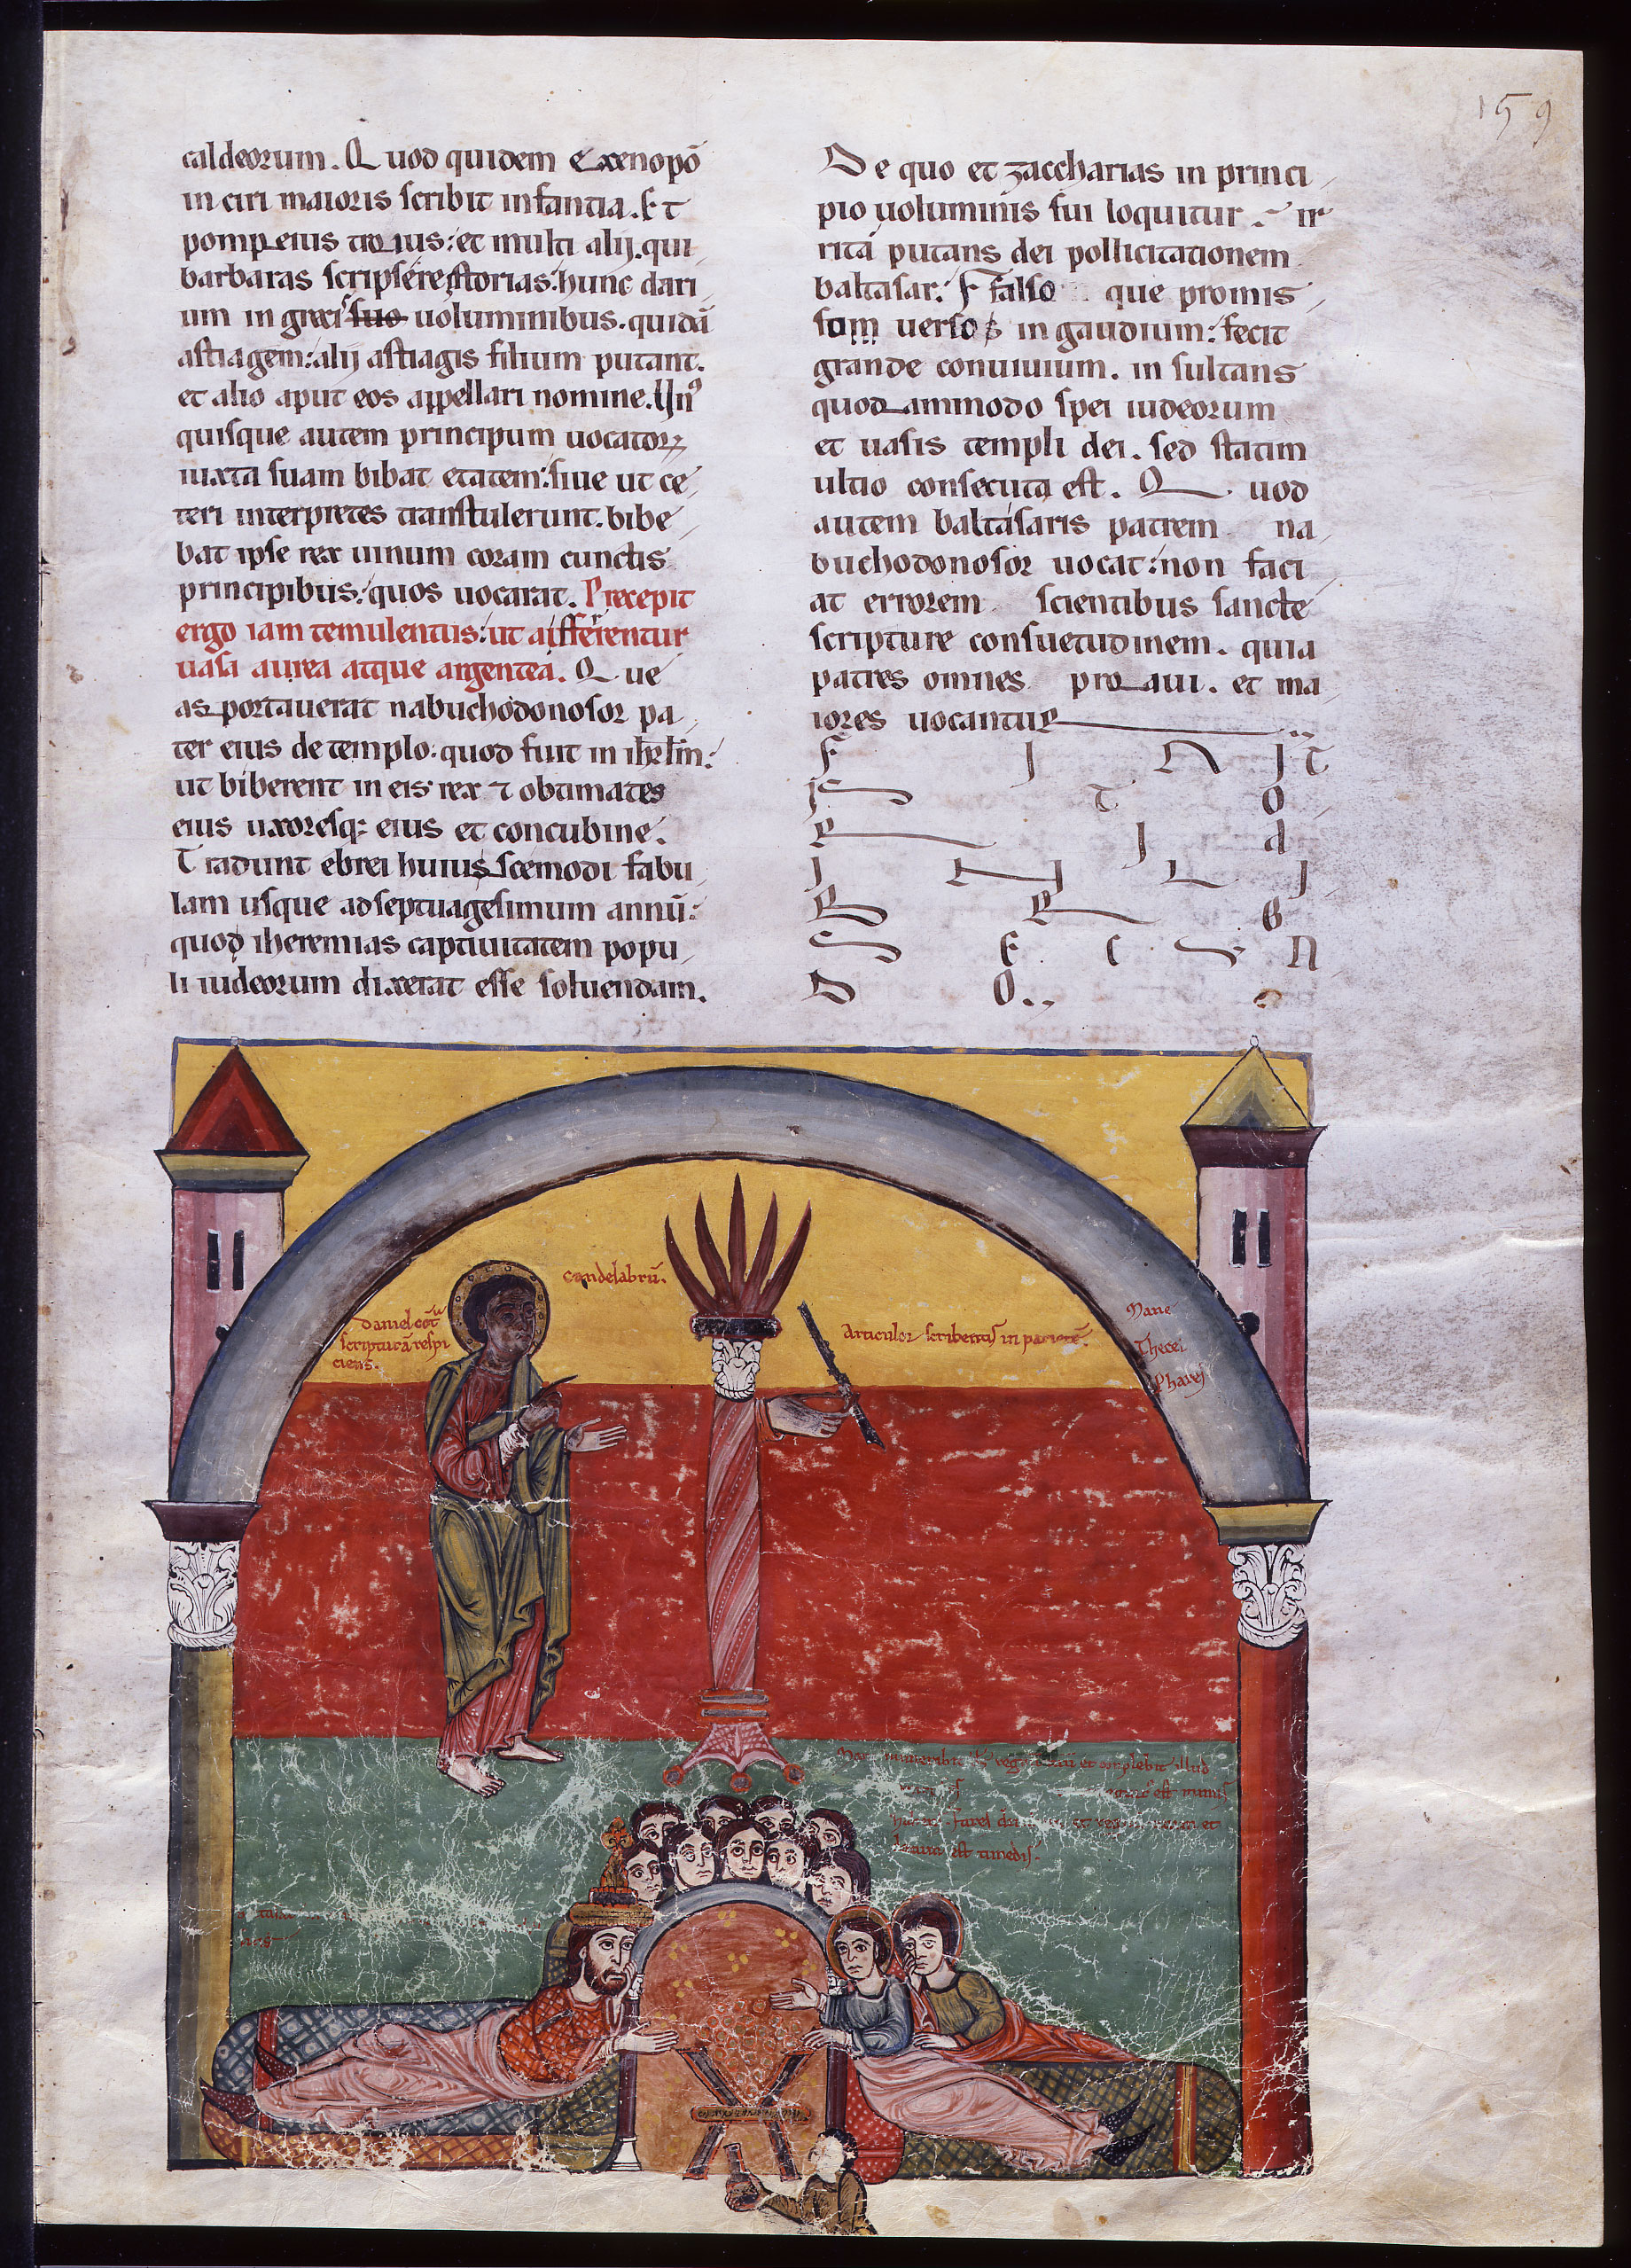 159
caldeorum. Quod quidem exenopō
in ciri maioris scribit infantia. Et
pompeius trojus: et multi alij. qui
barbaras scripsere storias: hunc dari
um in greci suo uoluminibus. quidā
astiagem: alij astiagis filium putant.
et alio aput eos appellari nomine. Un⁹
quisque autem principum uocatoꝝ
iuxta suam bibat etatem: siue ut ce
teri interpretes transtulerunt. bibe
bat ipse rex uinum coram cunctis
principibus: quos uocarat. Precepit
ergo iam temulentus: ut afferrentur
uasa aurea atque argentea. Que
asportauerat nabuchodonosor pa
ter eius de templo: quod fuit in ihrlm̄:
ut biberent in eis rex ⁊ obtimates
eius uxoresq; eius et concubine.
Tradunt ebrei huiuscemodi fabu
lam usque ad septuagesimum annū:
quod iheremias captiuitatem popu
li iudeorum dixerat esse soluendam.
De quo et zaccharias in princi
pio uoluminis sui loquitur. ir
ritā putans dei pollicitationem
baltasar. Falso que promis
sum uersos in gaudium: fecit
grande conuiuium. insultans
quodammodo spei iudeorum
et uasis templi dei. sed statim
ultio consecuta est. Quod
autem baltasaris patrem na
buchodonosor uocat: non faci
at errorem scientibus sancte
scripture consuetudinem. quia
patres omnes proaui. et ma
iores uocantur
F I N I T
S T O
R I A
I N L I
B R B
S E C S N
D O..
candelabrū.
daniel cōt
scripturā respi
ciens.
Articulor scribentis in pariete.
Mane
Thecel
Phares
regnū tuū et complebit illud
est minus
habens. fares
est a medis.